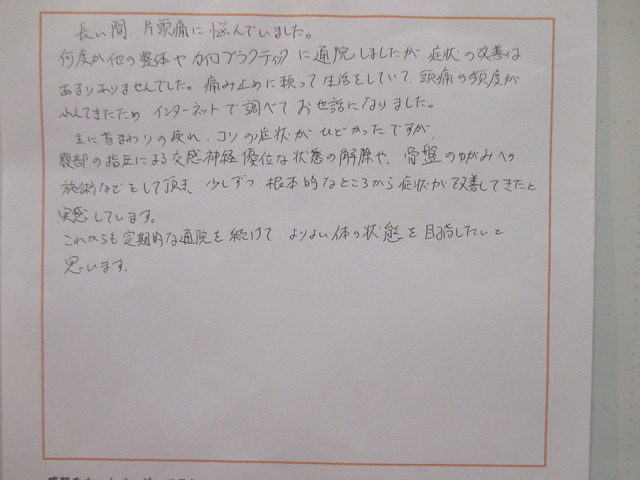 長い間、片頭痛に悩んでいました。
何度か他の整体やカイロプラクティックに通院しましたが症状の改善は
あまりありませんでした。痛み止めに頼って生活をしていて、頭痛の頻度が
ふえてきたためインターネットで調べてお世話になりました。
主に首まわりの疲れ、コリの症状がひどかったですが、
腹部の指圧による交感神経優位な状態の解除や、骨盤のゆがみへの
施術などをして頂き、少しずつ根本的なところから症状が改善してきたと
実感しています。
これからも定期的な通院を続けて、よりよい体の状態を目指したいと
思います。